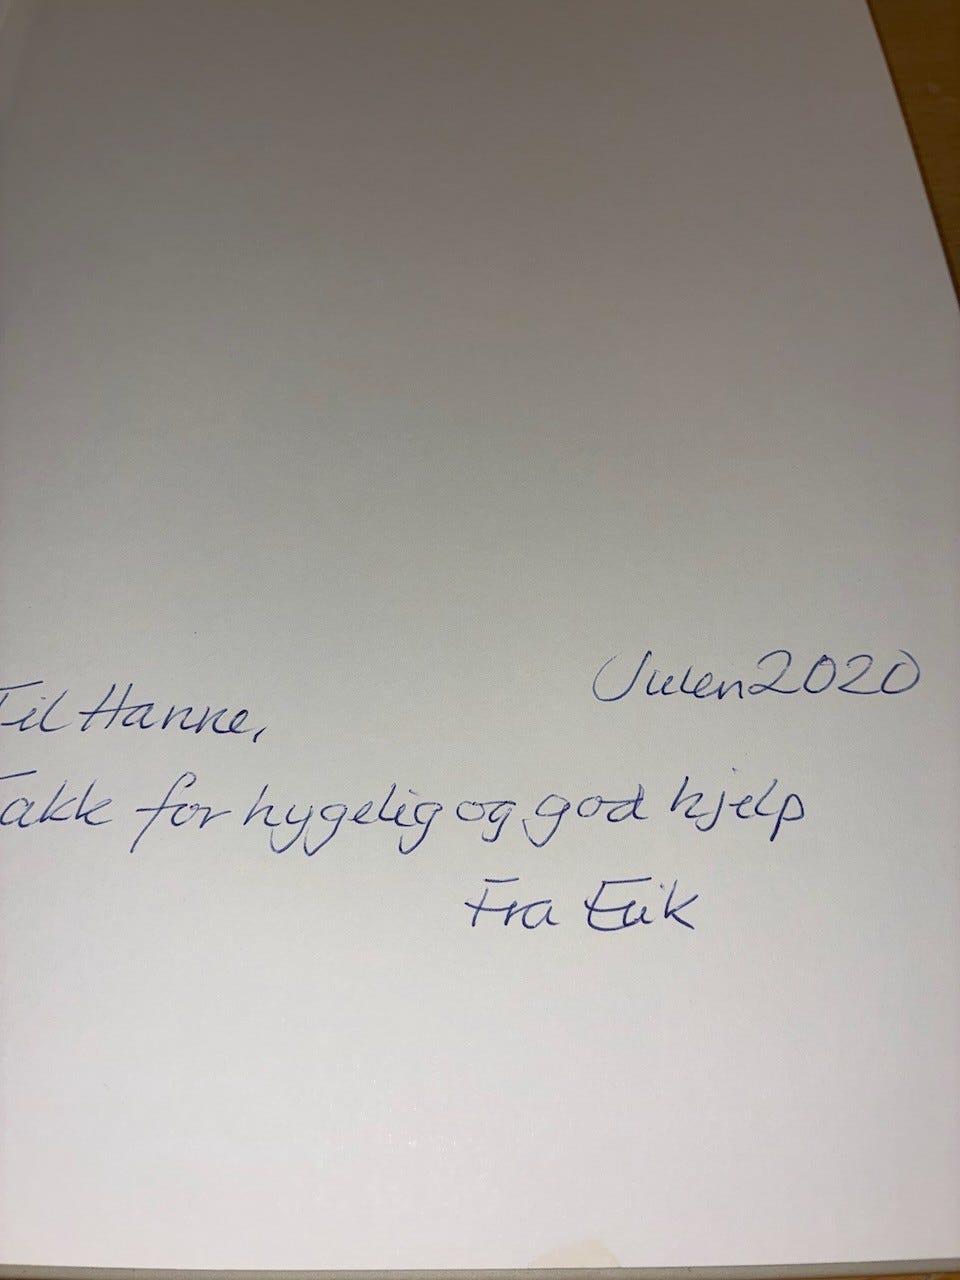 Julen 2020
Til Hanne,
Takk for hygelig og god hjelp
Fra Erik